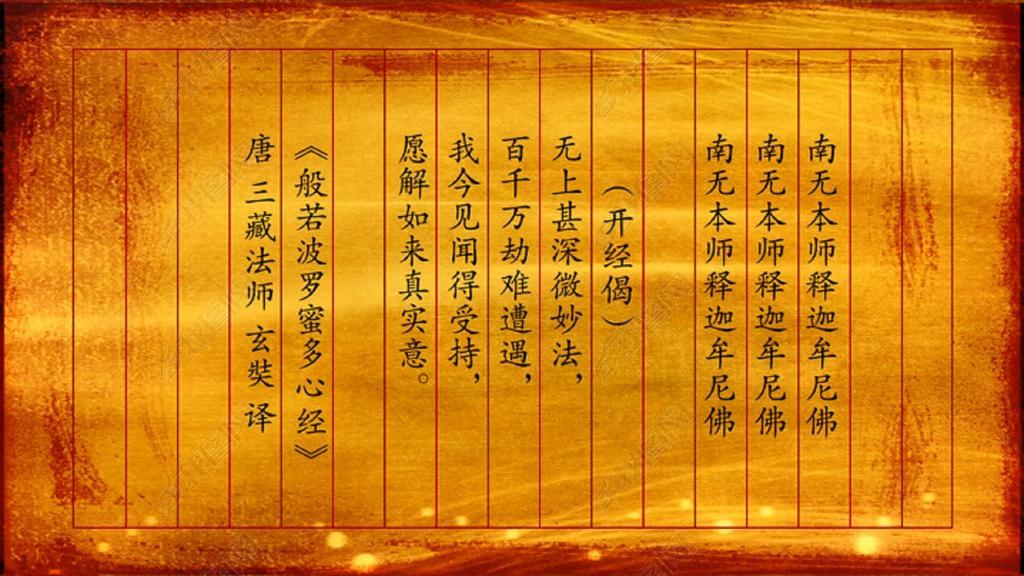 南无本师释迦牟尼佛
南无本师释迦牟尼佛
南无本师释迦牟尼佛
（开经偈）
无上甚深微妙法，
百千万劫难遭遇，
我今见闻得受持，
愿解如来真实意。
《般若波罗蜜多心经》
唐 三藏法师 玄奘 译